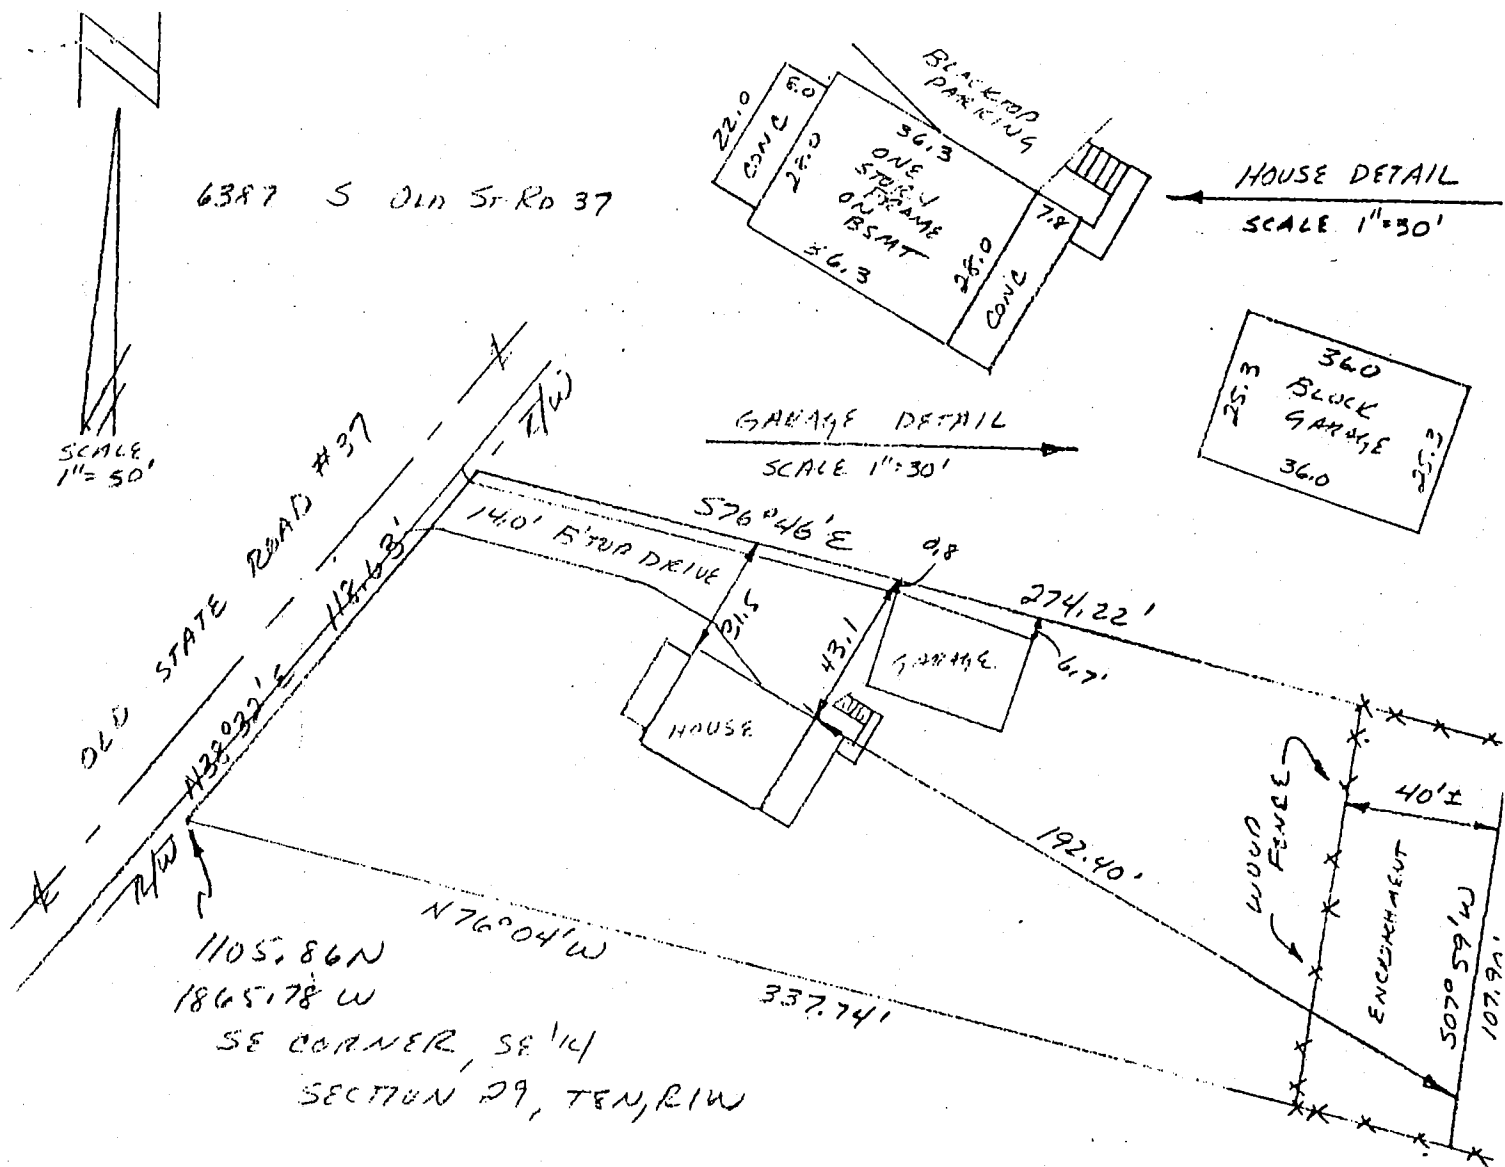 N
SCALE
1"=50'
6387 S OLD ST RD 37
BLACKTOP
PARKING
22.0
CONC
8.0
28.0
36.3
ONE
STORY
FRAME
ON
BSMT
36.3
28.0
7.8
CONC
HOUSE DETAIL
SCALE 1"=30'
36.0
25.3
BLOCK
GARAGE
25.3
36.0
GARAGE DETAIL
SCALE 1"=30'
OLD STATE ROAD #37
R/W
N38°32'E 118.63'
R/W
14.0' B'TOP DRIVE
S76°46'E
274.22'
0.8
31.5
43.1
GARAGE
6.7'
HOUSE
192.40'
WOOD
FENCE
40'±
ENCROACHMENT
S07°59'W
107.90'
N76°04'W
337.74'
1105.86N
1865.78 W
SE CORNER, SE 1/4
SECTION 29, T8N, R1W